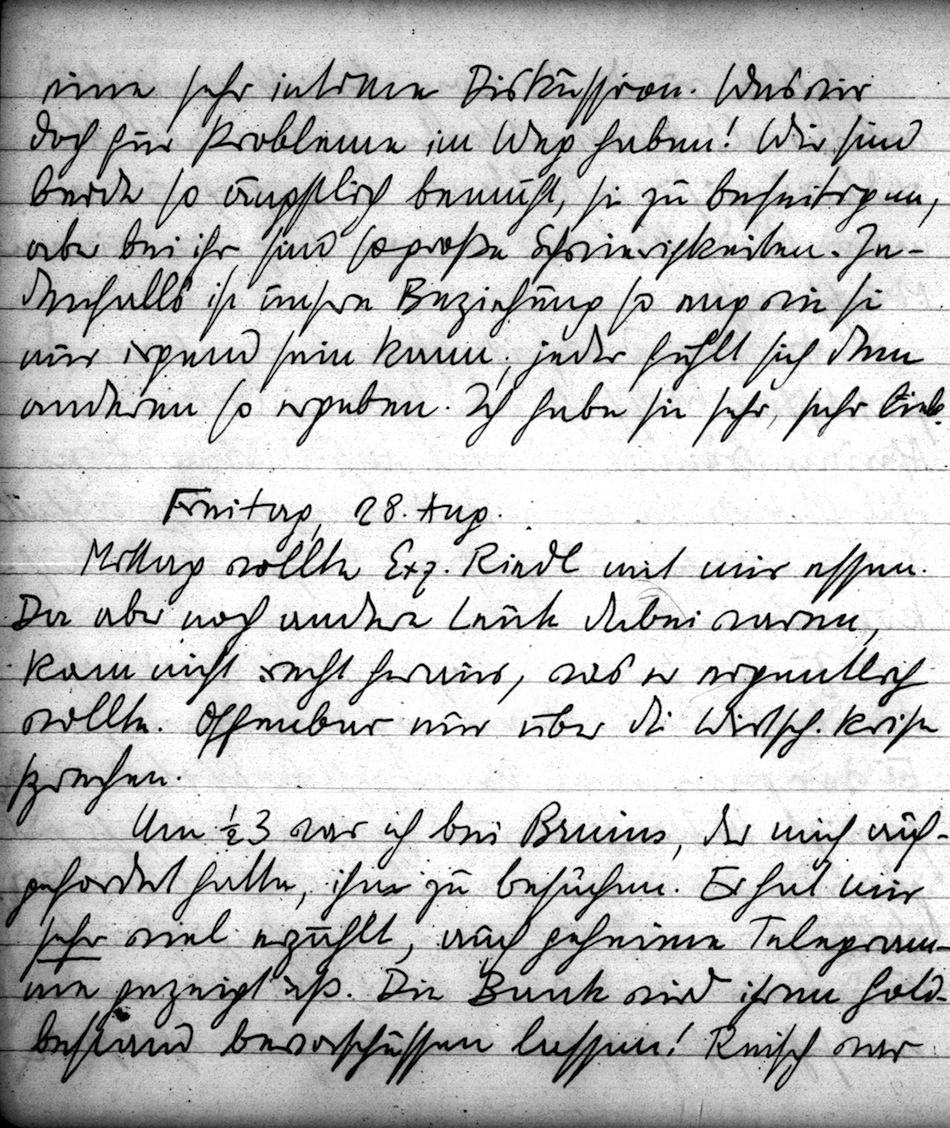 eine sehr intime Diskussion. Was wir
doch für Probleme im Weg haben! Wir sind
beide so ängstlich bemüht, sie zu beseitigen,
aber bei ihr sind so große Schwierigkeiten. Je-
denfalls ist unsere Beziehung so eng wie sie
nur irgend sein kann; jeder fühlt sich dem
anderen so ergeben. Ich habe sie sehr, sehr lieb.
Freitag, 28. Aug.
Mittag wollte Exz. Riedl mit mir essen.
Da aber noch andere Leute dabei waren,
kam nicht recht heraus, was er eigentlich
wollte. Offenbar nur über die Wirtsch. Krise
sprechen.
Um ½3 war ich bei Bruins, der mich auf-
gefordert hatte, ihn zu besuchen. Er hat mir
sehr viel erzählt, auch geheime Telegram-
me gezeigt usf. Die Bank wird ihren Gold-
bestand bevorschussen lassen! Reisch war